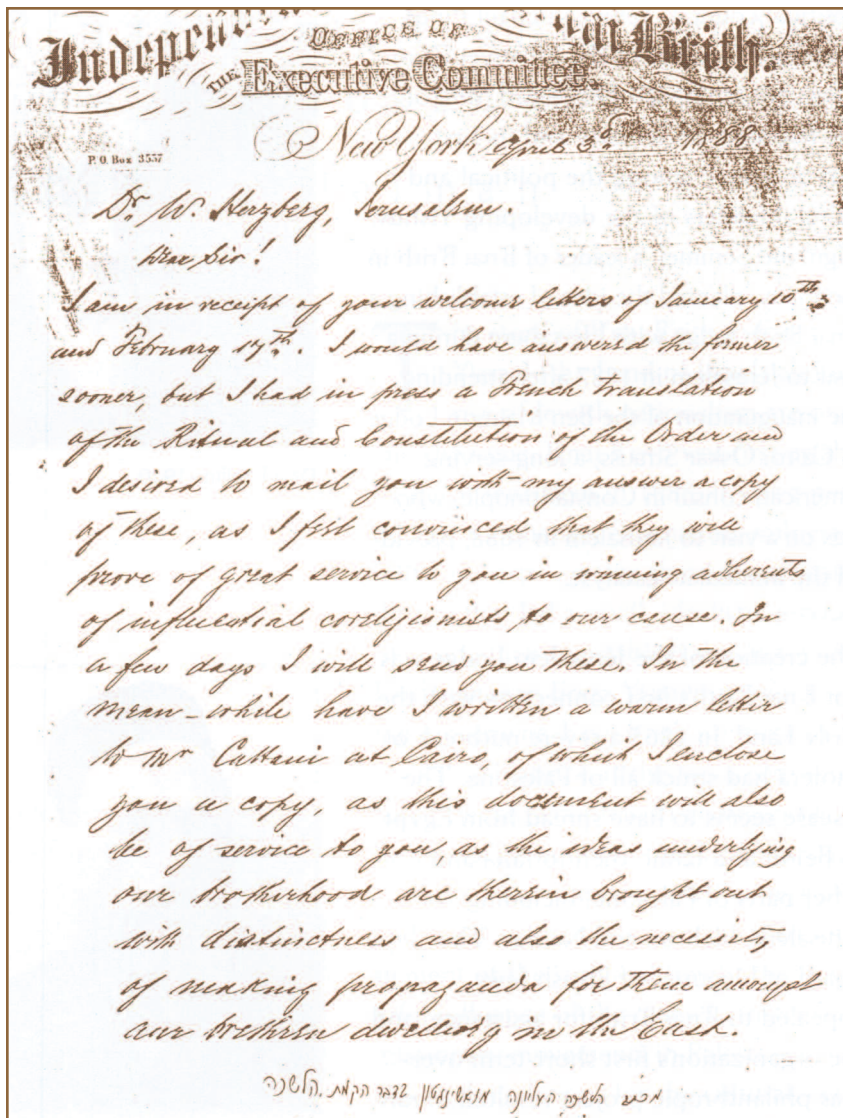 OFFICE OF
Independent Order B'nai Brith.
THE Executive Committee.
P. O. Box 3557
New York April 3d 1888
Dr. W. Herzberg, Jerusalem.
Dear Sir!
I am in receipt of your welcome letters of January 10th
and February 17th. I would have answered the former
sooner, but I had in press a French translation
of the Ritual and Constitution of the Order and
I desired to mail you with my answer a copy
of these, as I felt convinced that they will
prove of great service to you in winning adherents
of influential coreligionists to our cause. In
a few days I will send you these. In the
mean-while have I written a warm letter
to Mr Cattaui at Cairo, of which I enclose
you a copy, as this document will also
be of service to you, as the ideas underlying
our brotherhood are therein brought out
with distinctness and also the necessity
of making propaganda for them amongst
our brethren dwelling in the East.
מכתב הלשכה העליונה מוואשינגטון בדבר הקמת הלשכה